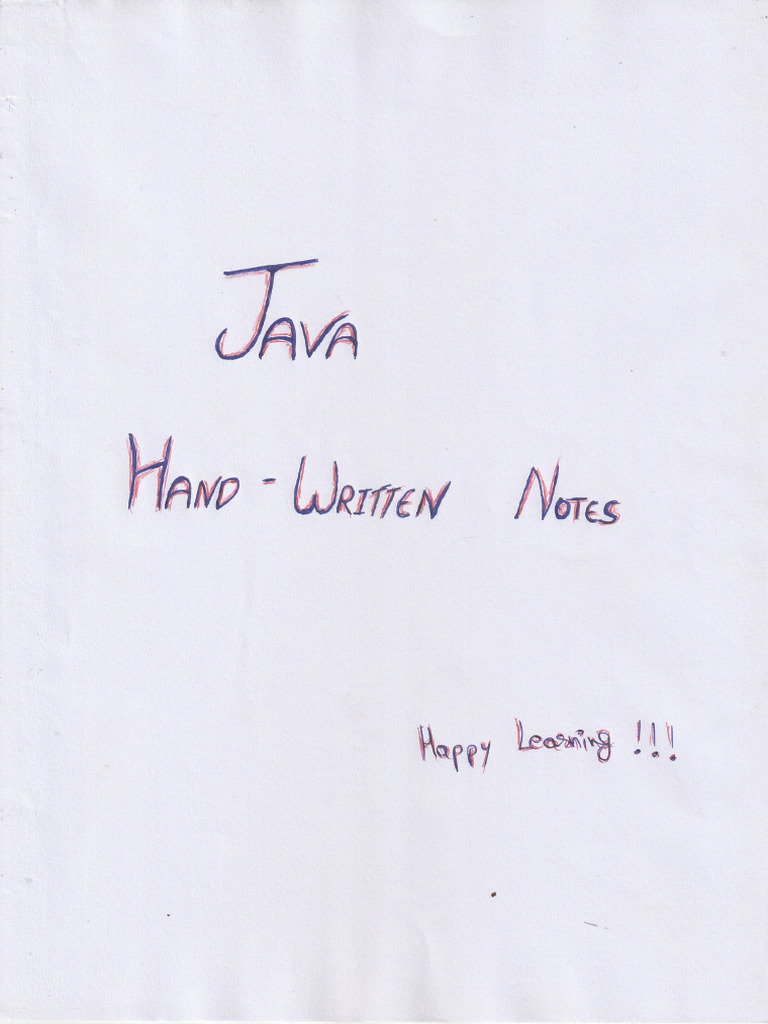 JAVA
HAND-WRITTEN NOTES
Happy Learning !!!